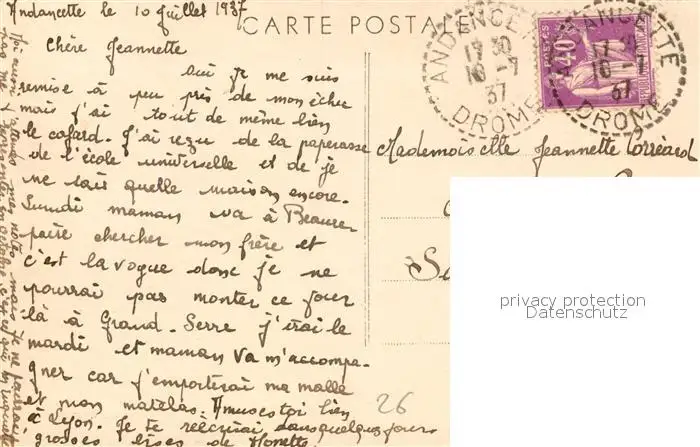 Andancette le 10 Juillet 1937
CARTE POSTALE
Chère Jeannette
Oui je me suis
remise à peu près de mon échec
mais j'ai tout de même bien
le cafard. J'ai reçu de la paperasse
de l'école universelle et de je
ne sais quelle maison encore.
Lundi maman va à Beaure-
paire chercher mon frère et
c'est la vogue donc je ne
pourrai pas monter ce jour
là à Grand-Serre j'irai le
mardi et maman va m'accompa-
gner car j'emporterai ma malle
et mon matelas. Amuses toi bien
à Lyon. Je te réécrirai dans quelques jours
grosses bises de
ANDANCETTE
17 30
10-7
37
DROME
ANDANCETTE
10-7
37
DROME
40
Mademoiselle Jeannette
26
privacy protection
Datenschutz